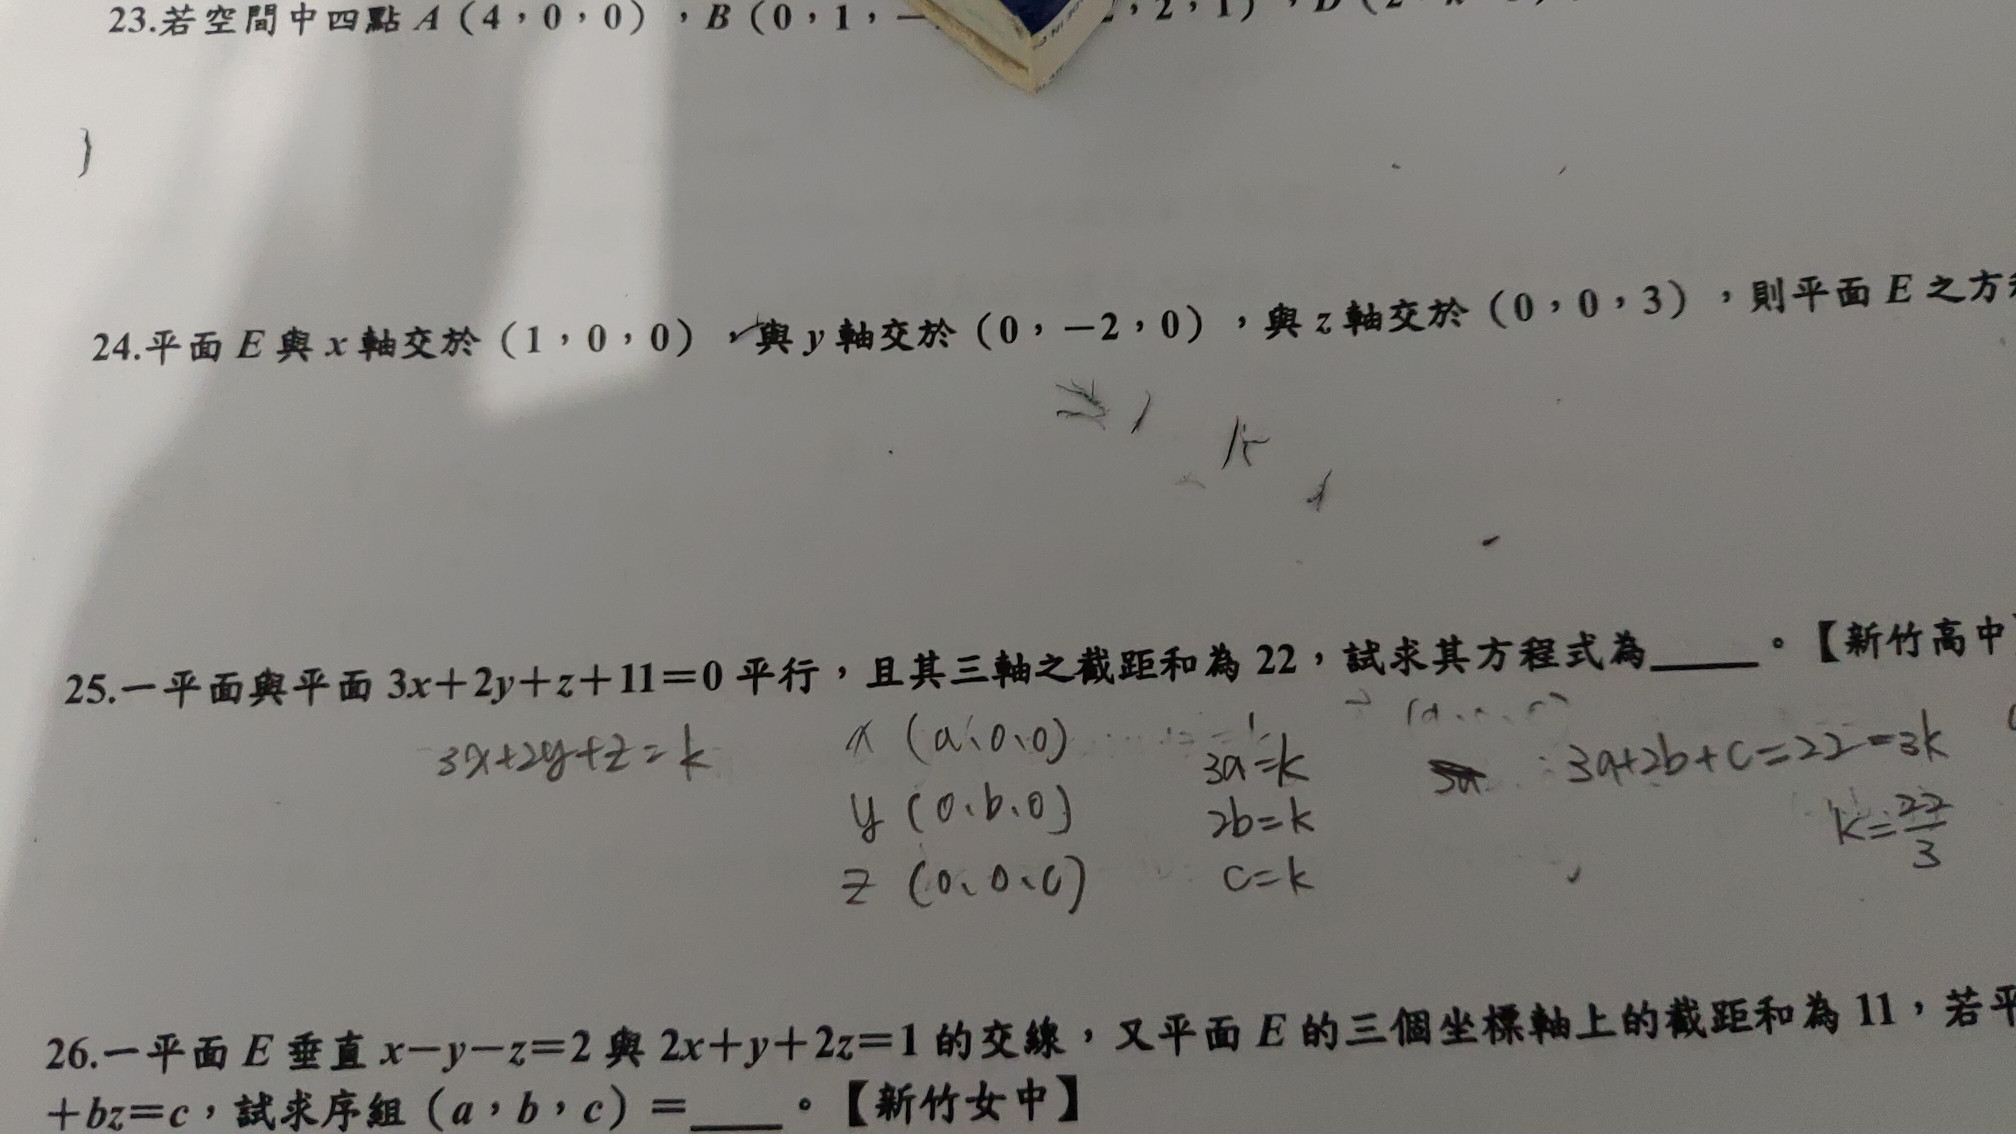 23.若空間中四點 A（4，0，0），B（0，1，－ 2，1），D（2
24.平面 E 與 x 軸交於（1，0，0），與 y 軸交於（0，－2，0），與 z 軸交於（0，0，3），則平面 E 之方
25.一平面與平面 3x＋2y＋z＋11＝0 平行，且其三軸之截距和為 22，試求其方程式為＿＿＿。【新竹高中
3x+2y+z=k
x (a、0、0)
3a=k
3a+2b+c=22=3k
y (0、b、0)
2b=k
k=22/3
z (0、0、c)
c=k
26.一平面 E 垂直 x－y－z＝2 與 2x＋y＋2z＝1 的交線，又平面 E 的三個坐標軸上的截距和為 11，若平
＋bz＝c，試求序組（a，b，c）＝＿＿＿。【新竹女中】